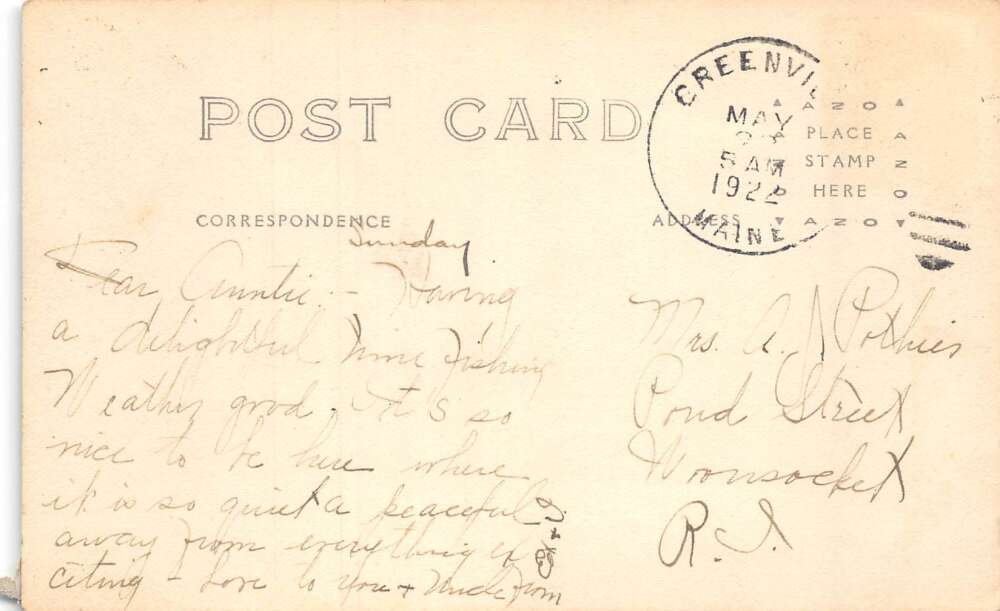 POST CARD
CORRESPONDENCE
ADDRESS
GREENVIL
MAY
5 AM
1922
MAINE
AZO
PLACE
STAMP
HERE
AZO
AZO
Sunday
Dear Auntie:- Having
a delightful time fishing
Weather good. It's so
nice to be here where
it is so quiet & peaceful
away from everything ex
citing - Love to you + Uncle from
Mrs. A. J. Pothier
Pond Street
Woonsocket
R.I.